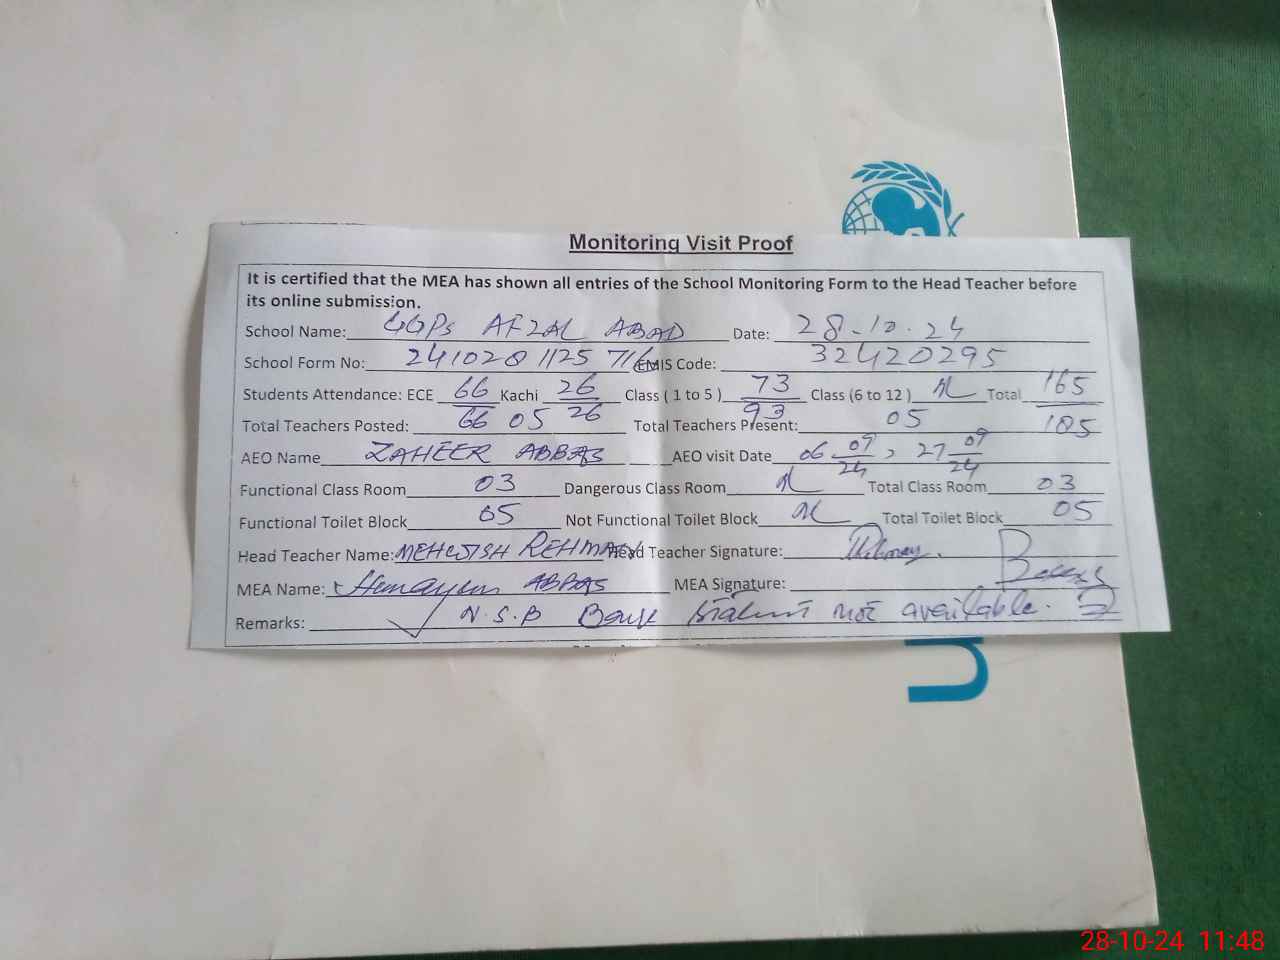 Monitoring Visit Proof
It is certified that the MEA has shown all entries of the School Monitoring Form to the Head Teacher before
its online submission.
School Name: GGPS AFZAL ABAD Date: 28.10.24
School Form No: 241028 1125 716 EMIS Code: 32420295
Students Attendance: ECE 66/66 Kachi 26/26 Class ( 1 to 5 ) 73/93 Class (6 to 12 ) Total 165/185
Total Teachers Posted: 05 Total Teachers Present: 05
AEO Name ZAHEER ABBAS AEO visit Date 06 09/24, 27 09/24
Functional Class Room 03 Dangerous Class Room Total Class Room 03
Functional Toilet Block 05 Not Functional Toilet Block Total Toilet Block 05
Head Teacher Name: MEHWISH REHMAN Head Teacher Signature:
MEA Name: Humayun ABBAS MEA Signature:
Remarks: N.S.B Bank not available.
un
28-10-24 11:48